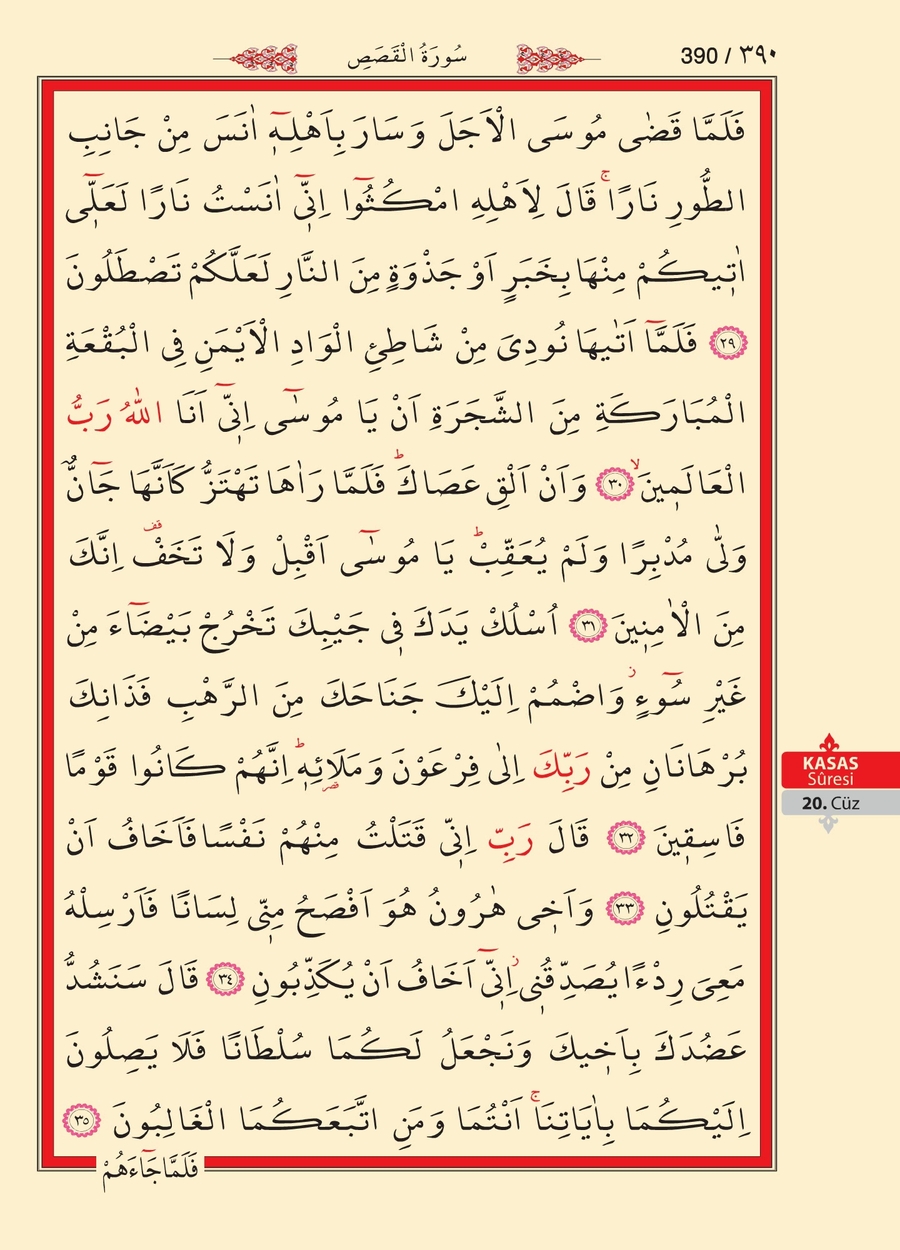 سُورَةُ الْقَصَصِ
390 / ٣٩٠
فَلَمَّا قَضٰى مُوسَى الْاَجَلَ وَسَارَ بِاَهْلِهٖٓ اٰنَسَ مِنْ جَانِبِ
الطُّورِ نَارًاۚ قَالَ لِاَهْلِهِ امْكُثُٓوا اِنّٖٓي اٰنَسْتُ نَارًا لَعَلّٖٓي
اٰتٖيكُمْ مِنْهَا بِخَبَرٍ اَوْ جَذْوَةٍ مِنَ النَّارِ لَعَلَّكُمْ تَصْطَلُونَ
﴿٢٩﴾ فَلَمَّٓا اَتٰيهَا نُودِيَ مِنْ شَاطِئِ الْوَادِ الْاَيْمَنِ فِي الْبُقْعَةِ
الْمُبَارَكَةِ مِنَ الشَّجَرَةِ اَنْ يَا مُوسٰٓى اِنّٖٓي اَنَا اللّٰهُ رَبُّ
الْعَالَمٖينَۙ ﴿٣٠﴾ وَاَنْ اَلْقِ عَصَاكَۜ فَلَمَّا رَاٰهَا تَهْتَزُّ كَاَنَّهَا جَٓانٌّ
وَلّٰى مُدْبِرًا وَلَمْ يُعَقِّبْۜ يَا مُوسٰٓى اَقْبِلْ وَلَا تَخَفْ۠ اِنَّكَ
مِنَ الْاٰمِنٖينَ ﴿٣١﴾ اُسْلُكْ يَدَكَ فٖي جَيْبِكَ تَخْرُجْ بَيْضَٓاءَ مِنْ
غَيْرِ سُٓوءٍؗ وَاضْمُمْ اِلَيْكَ جَنَاحَكَ مِنَ الرَّهْبِ فَذَانِكَ
بُرْهَانَانِ مِنْ رَبِّكَ اِلٰى فِرْعَوْنَ وَمَلَائِهٖۜ اِنَّهُمْ كَانُوا قَوْمًا
فَاسِقٖينَ ﴿٣٢﴾ قَالَ رَبِّ اِنّٖي قَتَلْتُ مِنْهُمْ نَفْسًا فَاَخَافُ اَنْ
يَقْتُلُونِ ﴿٣٣﴾ وَاَخٖي هٰرُونُ هُوَ اَفْصَحُ مِنّٖي لِسَانًا فَاَرْسِلْهُ
مَعِيَ رِدْءًا يُصَدِّقُنٖيؗ اِنّٖٓي اَخَافُ اَنْ يُكَذِّبُونِ ﴿٣٤﴾ قَالَ سَنَشُدُّ
عَضُدَكَ بِاَخٖيكَ وَنَجْعَلُ لَكُمَا سُلْطَانًا فَلَا يَصِلُونَ
اِلَيْكُمَا بِاٰيَاتِنَاۚ اَنْتُمَا وَمَنِ اتَّبَعَكُمَا الْغَالِبُونَ ﴿٣٥﴾
فَلَمَّا جَٓاءَهُمْ
KASAS
Sûresi
20. Cüz